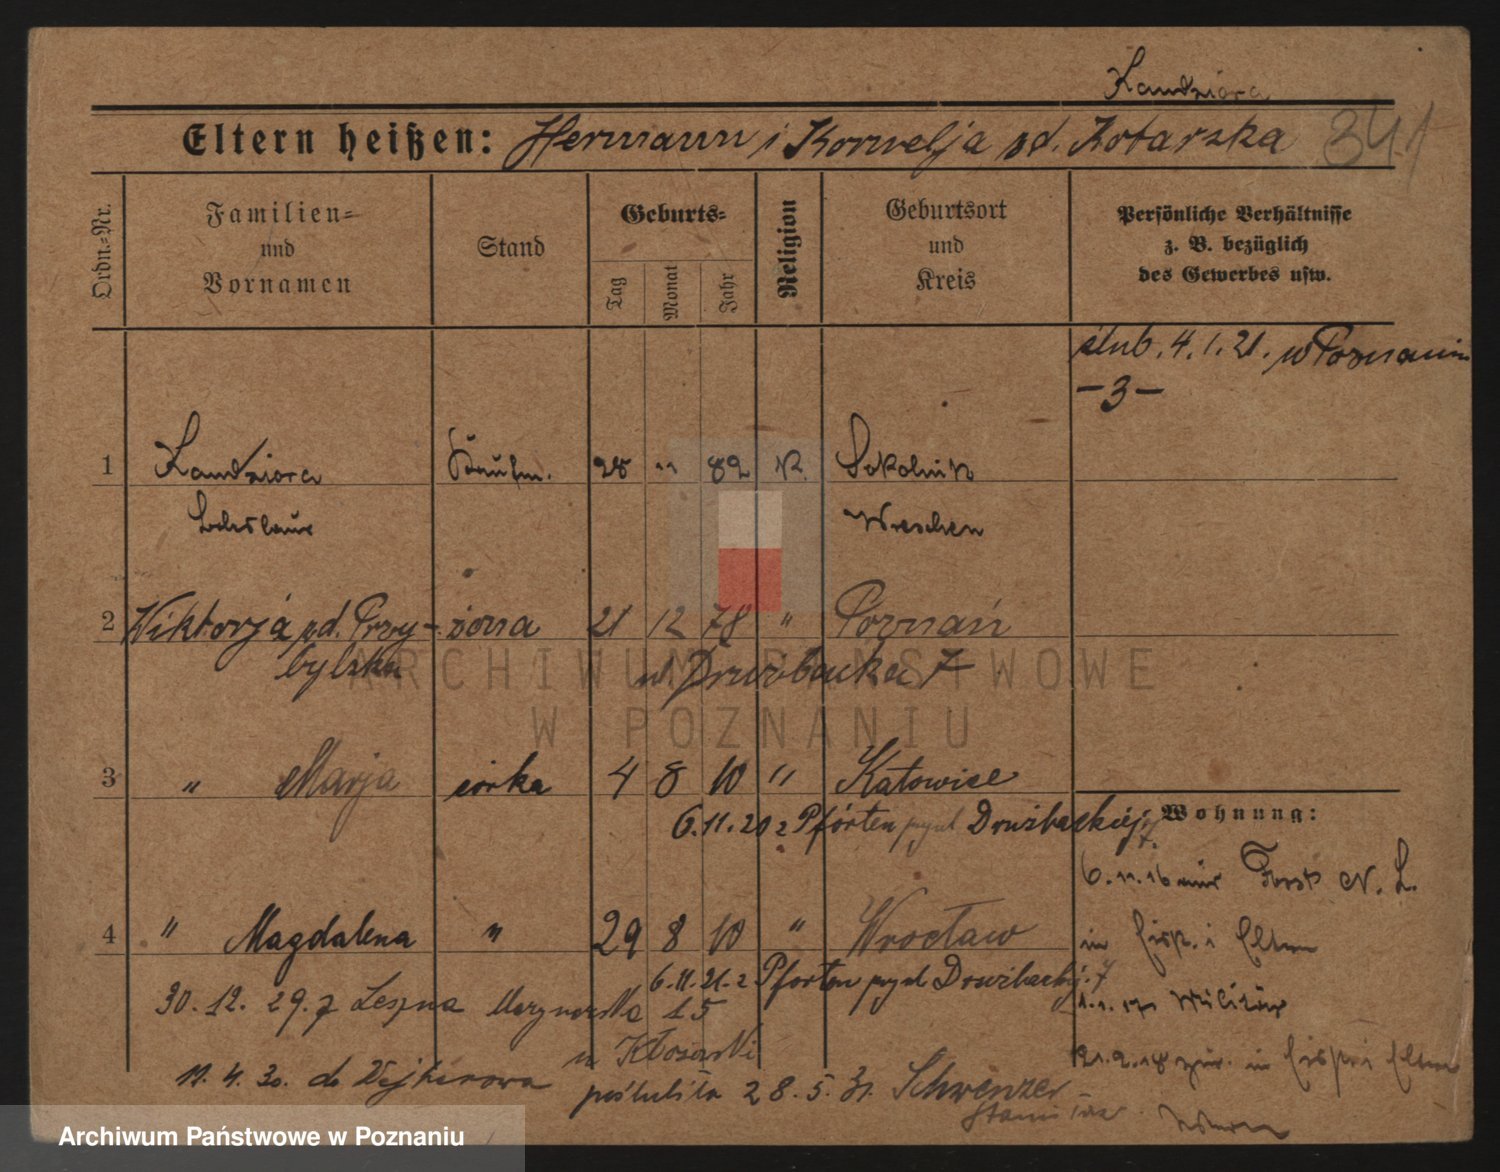 Kandziora
Eltern heißen: Hermann i Kornelja zd. Kotarska 341
Ordn.-Nr.
Familien- und Vornamen
Stand
Geburts-
Tag Monat Jahr
Religion
Geburtsort und Kreis
Persönliche Verhältnisse z. B. bezüglich des Gewerbes usw.
ślub. 4.1.21. w Poznaniu
-3-
1 Kandziora Kaufm. 28 11 82 K. Sokolnik
Wreschen
2 Wiktorja zd. Przy- żona 21 12 78 " Poznań
bylska Drużbacka 7
3 " Marja córka 4 8 10 " Katowice
6.11.20 z Pförten Drużbackiej 7.
Wohnung:
6.11.16 Forst N. L.
4 " Magdalena " 29 8 10 " Wrocław
in Eltern
6.11.21. z Pforten Drużbackiej. 7
30.12.29. z Leszna 15
1.1.17 Militär
21.2.18 zur. in Eltern
11.4.30. do Wejherowa
poślubiła 28.5.31. Schwenzer
ARCHIWUM PAŃSTWOWE
W POZNANIU
Archiwum Państwowe w Poznaniu